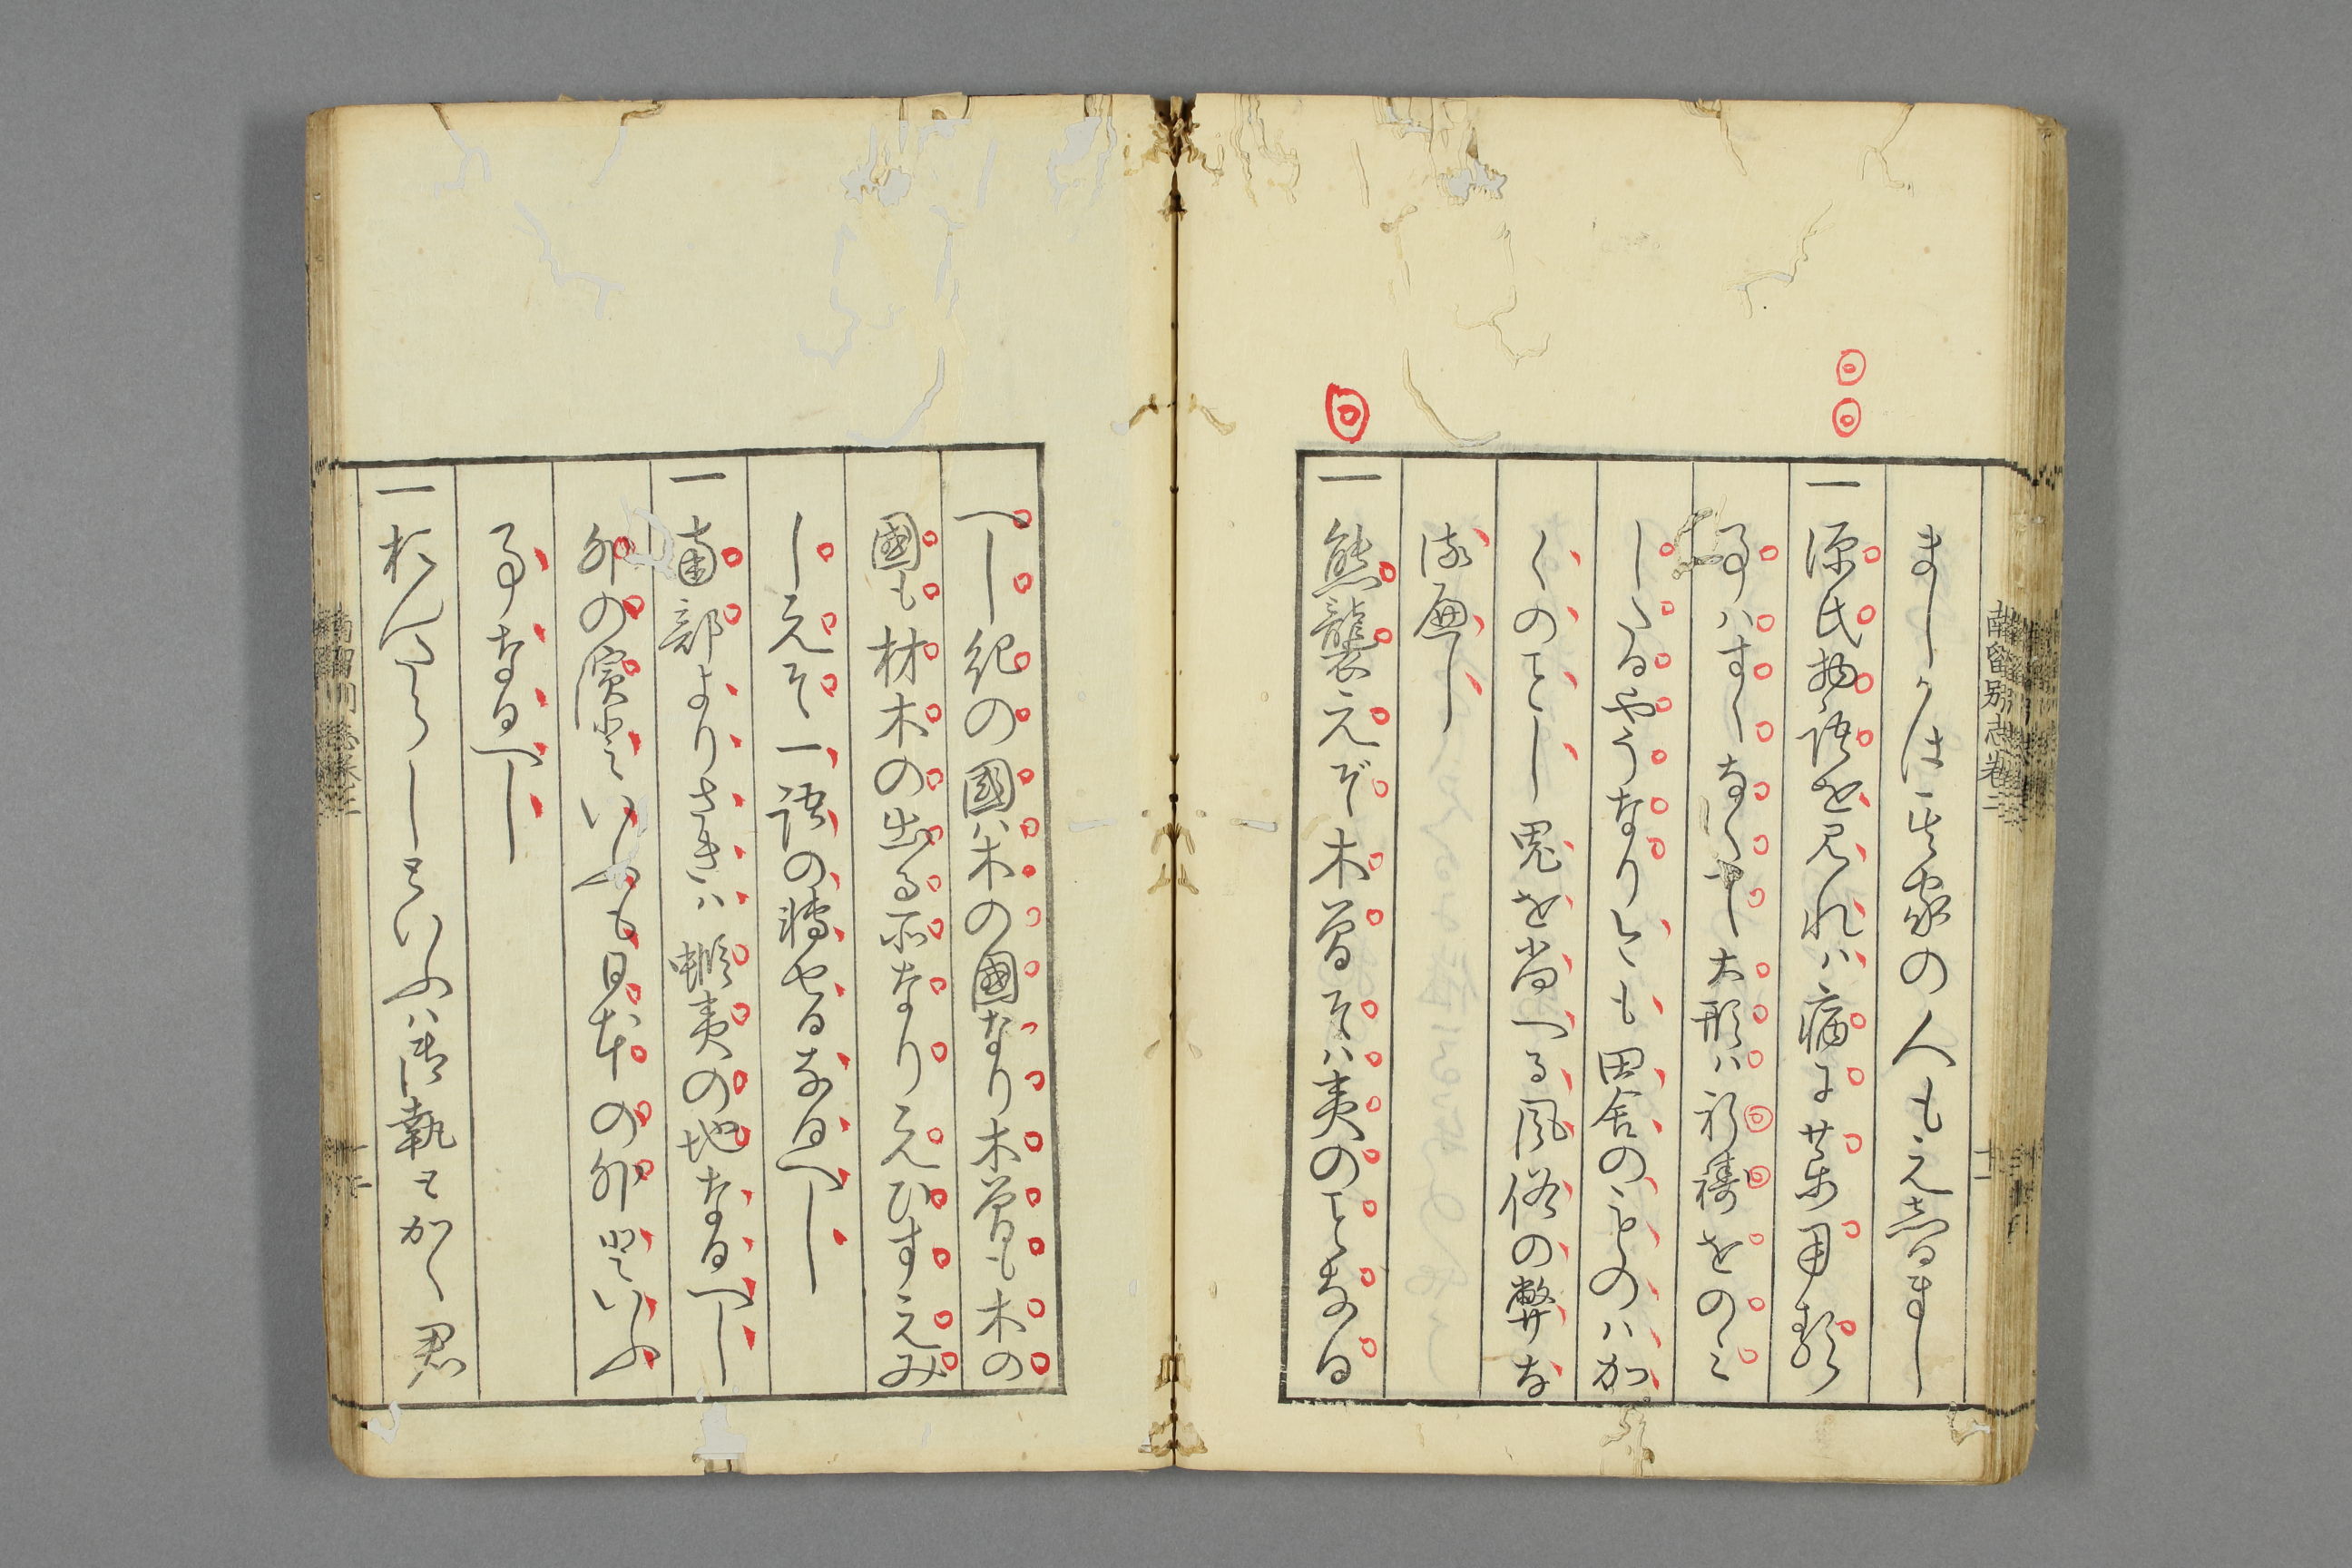 ましかは其家の人もえ書まし
一源氏物語を見れハ病に薬用ゐる
事ハすくなくて大形ハ祈祷をのミ
したるやうなり今も田舎のものハか
くのことし鬼を尚へる風俗の弊な
る
一熊襲えぞ木曽そハ夷のことなる
へし紀の國ハ木の國なり木曽も木の
國も材木の出る所なりえひすえみ
しえそ一語の轉せるなるへし
一南部よりさきハ蝦夷の地なるへし
外の濱といふも日本の外といふ
事なるへし
一おんたらしといふハ御執とかく君
南留別志巻二
十一